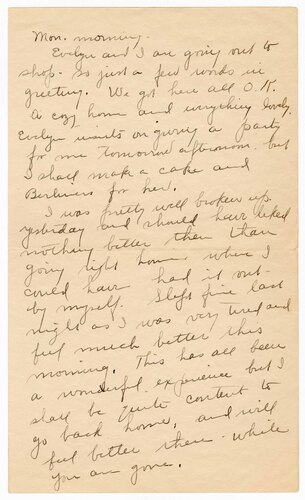 Mon. morning.
Evelyn and I are going out to
shop - so just a few words in
greeting. We got here all O.K.
A cozy home and everything lovely.
Evelyn wants on giving a party
for me tomorrow afternoon, but
I shall make a cake and
Berliners for her.
I was pretty well broken up
yesterday and should have liked
nothing better then than
going light home where I
could have had it out
by myself. Slept fine last
night as I was very tired and
feel much better this
morning. This has all been
a wonderful experience but I
shall be quite content to
go back home, and will
feel better there - while
you are gone.